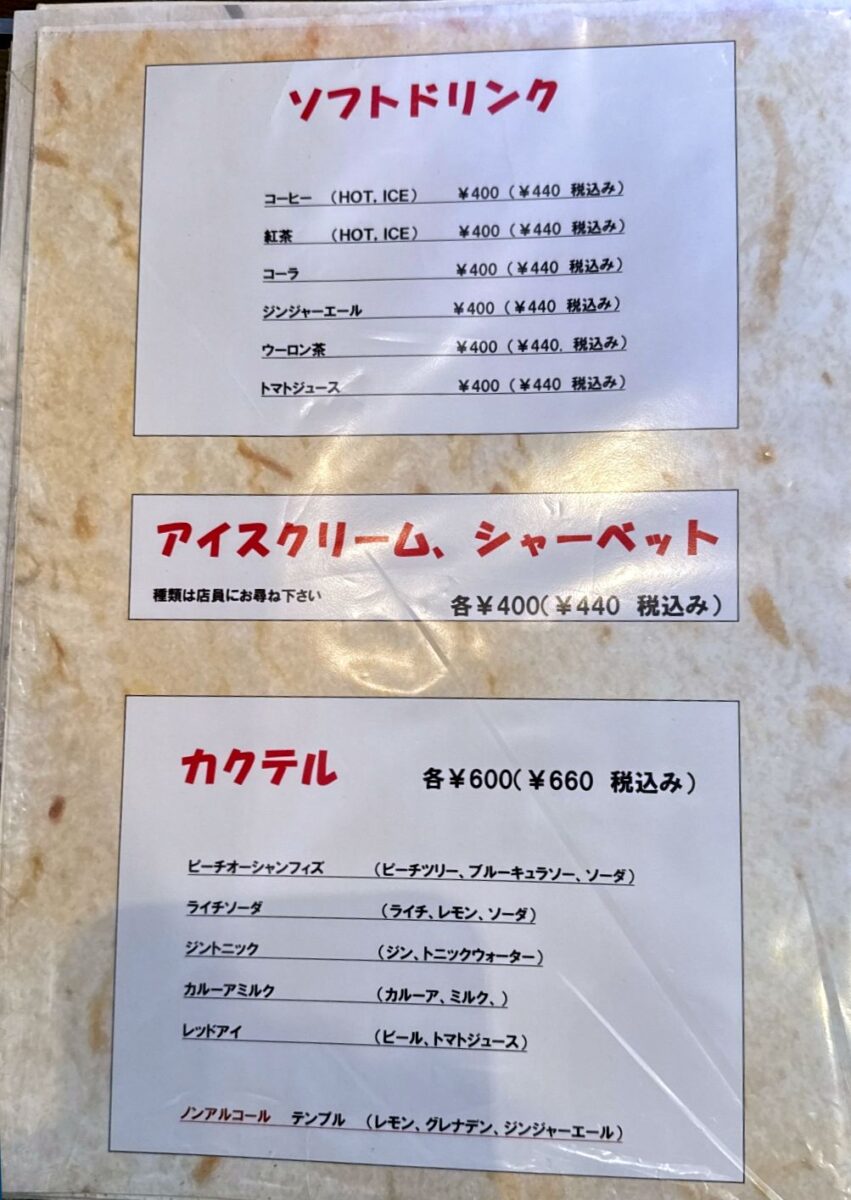 ソフトドリンク
コーヒー （HOT, ICE） ￥400（￥440 税込み）
紅茶 （HOT, ICE） ￥400（￥440 税込み）
コーラ ￥400（￥440 税込み）
ジンジャーエール ￥400（￥440 税込み）
ウーロン茶 ￥400（￥440. 税込み）
トマトジュース ￥400（￥440 税込み）
アイスクリーム、シャーベット
種類は店員にお尋ね下さい 各￥400（￥440 税込み）
カクテル 各￥600（￥660 税込み）
ピーチオーシャンフィズ （ピーチツリー、ブルーキュラソー、ソーダ）
ライチソーダ （ライチ、レモン、ソーダ）
ジントニック （ジン、トニックウォーター）
カルーアミルク （カルーア、ミルク、）
レッドアイ （ビール、トマトジュース）
ノンアルコール テンプル （レモン、グレナデン、ジンジャーエール）